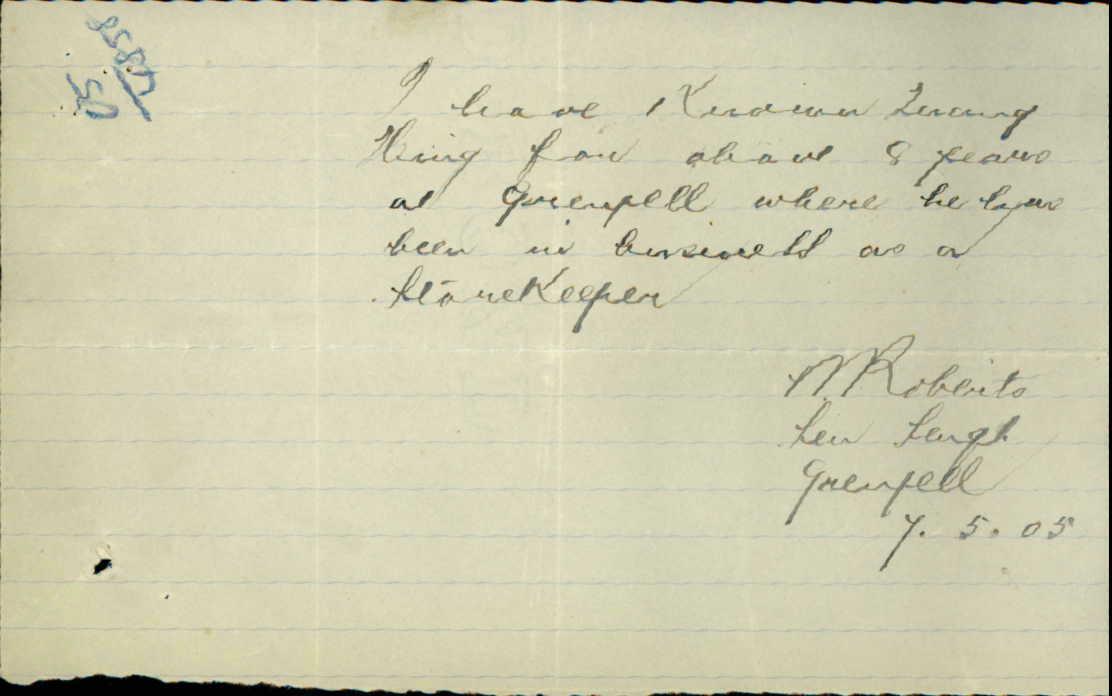 8587
05
I have Known Quong
Hing for about 8 years
at Grenfell where he has
been in business as a
StoreKeeper
Roberts
Sen Sergt
Grenfell
7. 5. 05